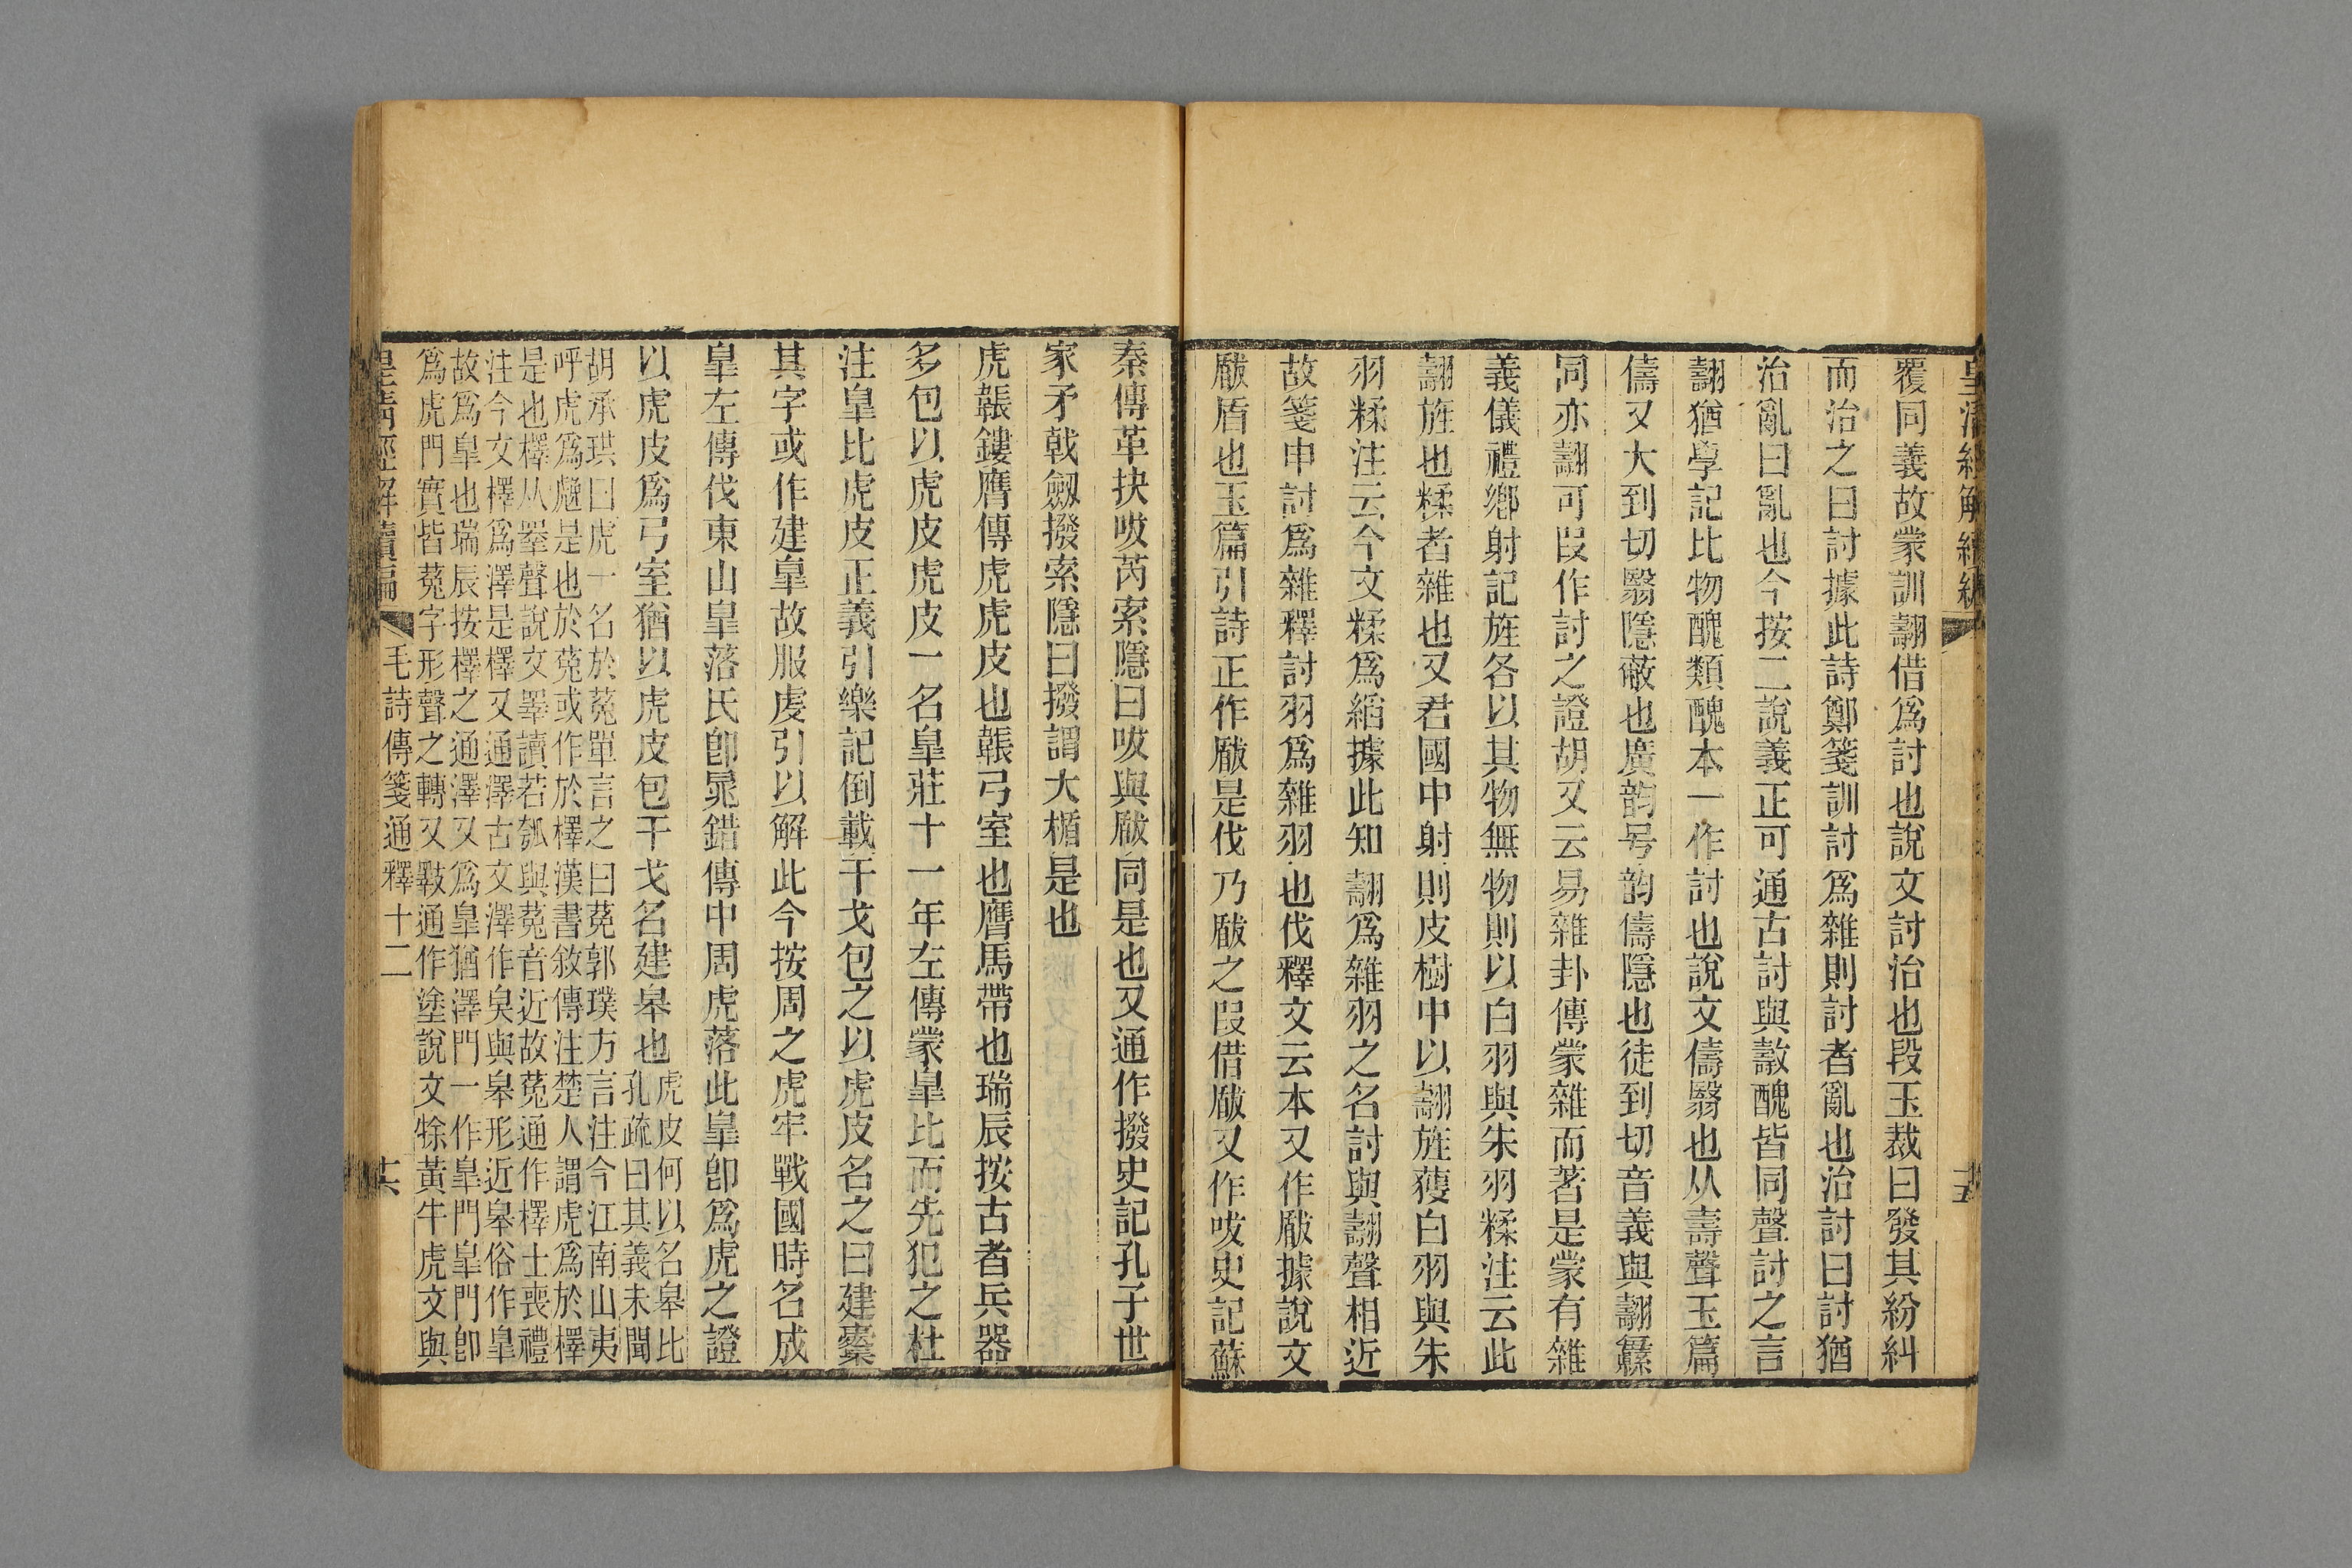 皇清經解續編 十五
覆同義故蒙訓翿借爲討也說文討治也段玉裁曰發其紛糾
而治之曰討據此詩鄭箋訓討爲雜則討者亂也治討曰討猶
治亂曰亂也今按二說義正可通古討與敹醜皆同聲討之言
翿猶學記比物醜類醜本一作討也說文儔翳也从壽聲玉篇
儔又大到切翳隱蔽也廣韵号韵儔隱也徒到切音義與翿纛
同亦翿可叚作討之證胡又云易雜卦傳蒙雜而著是蒙有雜
義儀禮鄉射記旌各以其物無物則以白羽與朱羽糅注云此
翿旌也糅者雜也又君國中射則皮樹中以翿旌獲白羽與朱
羽糅注云今文糅爲縚據此知翿爲雜羽之名討與翿聲相近
故箋申討爲雜釋討羽爲雜羽也伐釋文云本又作瞂據說文
瞂盾也玉篇引詩正作瞂是伐乃瞂之叚借瞂又作㕹史記蘇
秦傳革抉㕹芮索隱曰㕹與瞂同是也又通作撥史記孔子世
家矛戟劔撥索隱曰撥謂大楯是也
虎韔鏤膺傳虎虎皮也韔弓室也膺馬帶也瑞辰按古者兵器
多包以虎皮虎皮一名皐莊十一年左傳蒙皐比而先犯之杜
注皐比虎皮正義引樂記倒載干戈包之以虎皮名之曰建櫜
其字或作建皐故服虔引以解此今按周之虎牢戰國時名成
皐左傳伐東山皐落氏卽鼂錯傳中周虎落此皐卽爲虎之證
以虎皮爲弓室猶以虎皮包干戈名建皋也虎皮何以名皋比
孔疏曰其義未聞
胡承珙曰虎一名於菟單言之曰菟郭璞方言注今江南山夷
呼虎爲䖘是也於菟或作於檡漢書敘傳注楚人謂虎爲於檡
是也檡从睪聲說文睪讀若瓠與菟音近故菟通作檡士喪禮
注今文檡爲澤是檡又通澤古文澤作臭與皋形近皋俗作皐
故爲皐也瑞辰按檡之通澤又爲皐猶澤門一作皐門皐門卽
爲虎門實皆菟字形聲之轉又斁通作塗說文悇黃牛虎文與
皇清經解續編 毛詩傳箋通釋十二 十六